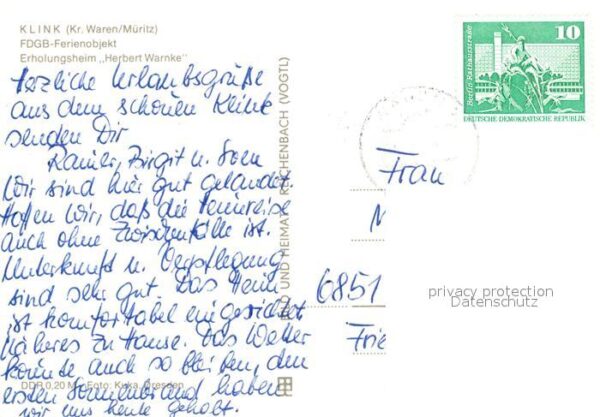 KLINK (Kr. Waren/Müritz)
FDGB-Ferienobjekt
Erholungsheim „Herbert Warnke"
Herzliche Urlaubsgrüße
aus dem schönen Klink
senden Dir
Rainer, Birgit u. Sven
Wir sind hier gut gelandet.
Hoffen wir, daß die Heimreise
auch ohne Zwischenfälle ist.
Unterkunft u. Verpflegung
sind sehr gut. Das Heim
ist komfortabel eingerichtet
Näheres zu Hause. Das Wetter
könnte auch so bleiben, den
ersten Sonnenbrand haben
wir uns heute geholt.
DDR 0,20 M Foto: Kuka, Dresden
BILD UND HEIMAT REICHENBACH (VOGTL)
10
Berlin-Rathausstraße
DEUTSCHE DEMOKRATISCHE REPUBLIK
Frau
N
6851
Frie
privacy protection
Datenschutz